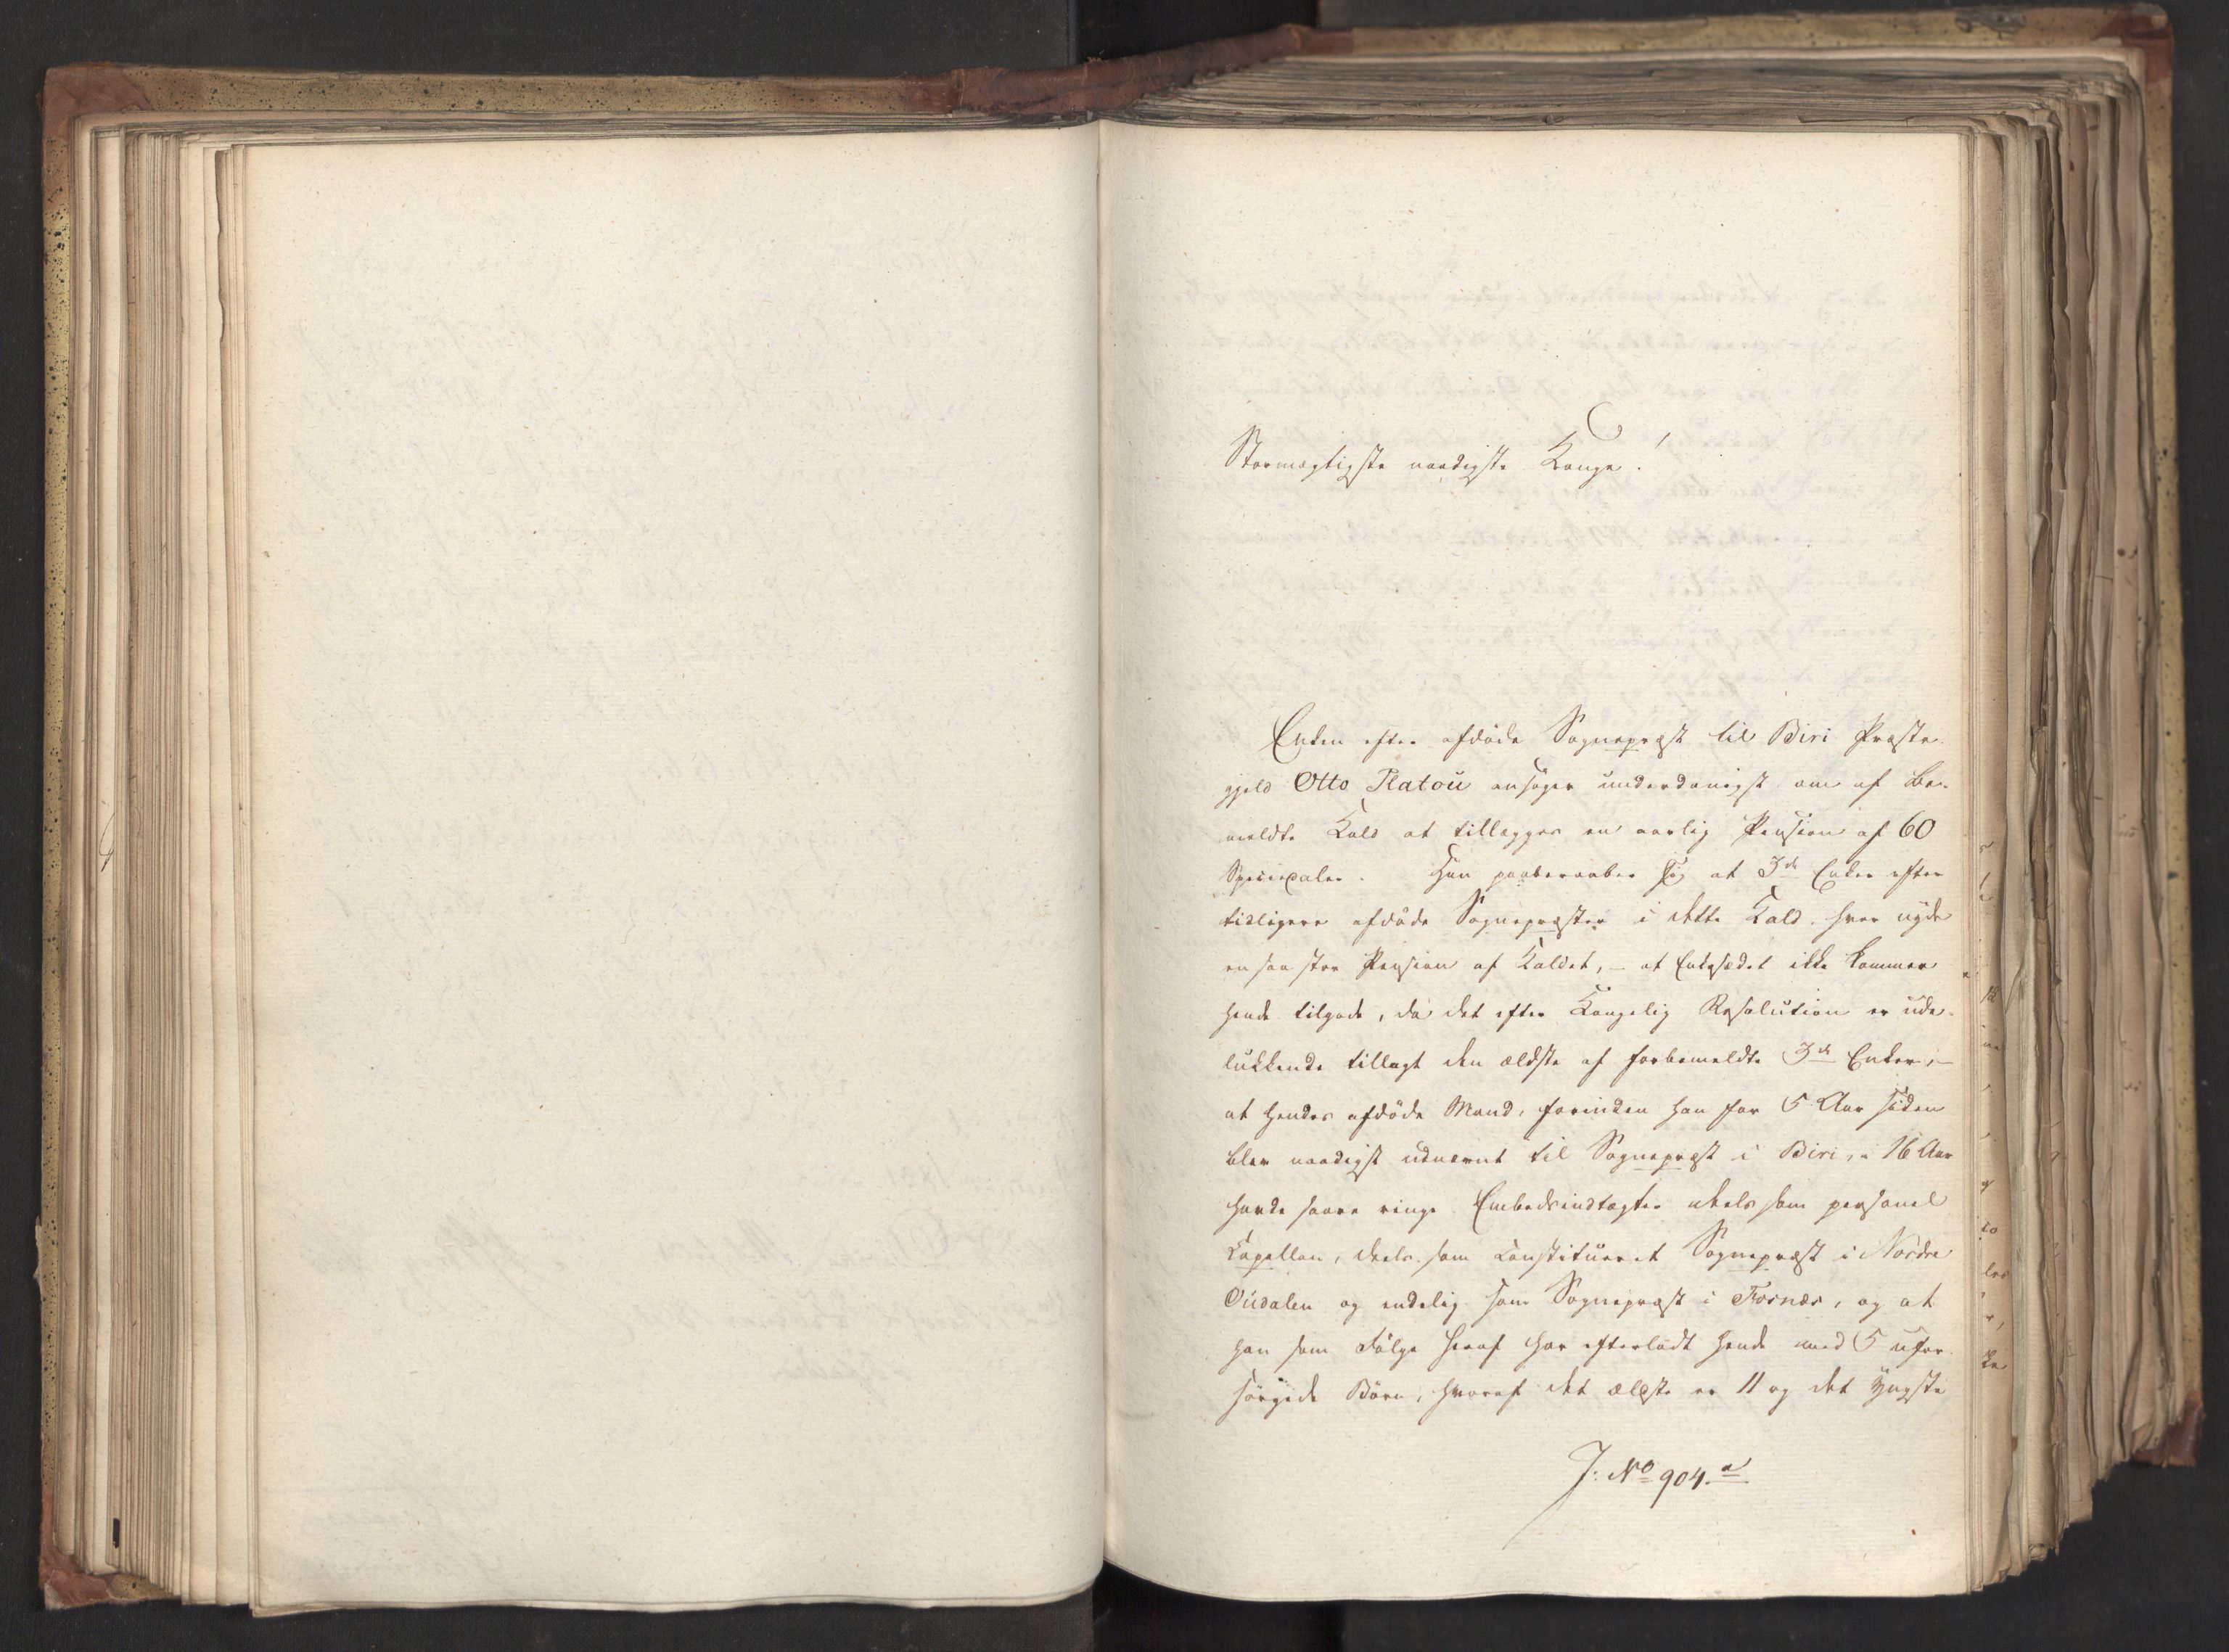 Stormægtigste naadigste Konge!
Enken efter afdöde Sognepræst til Biri Præste-
gjeld Otto Platou ansöger underdanigst om af be-
meldte Kald at tillægges en aarlig Pension af 60
Speciedaler. Hun paaberaaber sig at 3de Enker efter
tidligere afdöde Sognepræster i dette Kald hver nyder
en saa stor Pension af Kaldet, – at Enkesædet ikke kommer
hende tilgode, da det efter Kongelig Resolution er ude-
lukkende tillagt den ældste af forbemeldte 3de Enker, –
at hendes afdöde Mand, forinden han for 5 Aar siden
blev naadigst udnævnt til Sognepræst i Biri, i 16 Aar
havde saare ringe Embedsindtægter deels som personel
Capellan, deels som constitueret Sognepræst i Nordre
Oudalen og endelig som Sognepræst i Fosnæs, og at
han som Fölge heraf har efterladt hende med 5 ufor-
sörgede Börn, hvoraf det ældste er 11 og det yngste
J: No 904.a